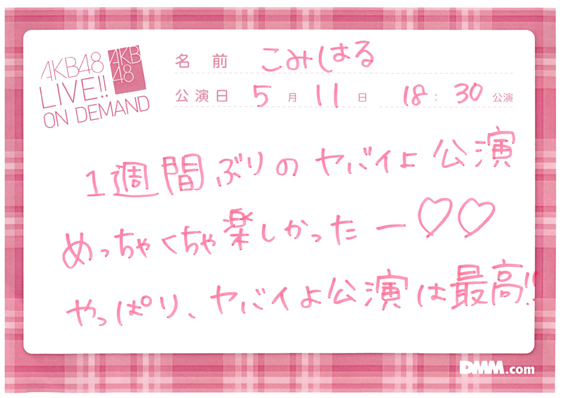 AKB48
LIVE!!
ON DEMAND
AKB
48
名前 こみはる
公演日 5月11日 18:30公演
1週間ぶりのヤバイよ公演
めっちゃくちゃ楽しかったー♡♡
やっぱり、ヤバイよ公演は最高!!
DMM.com